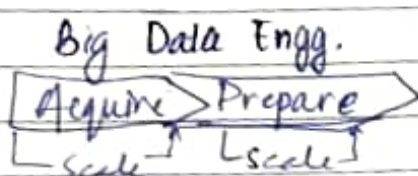 Big Data Engg.
Acquire Prepare
Scale Scale